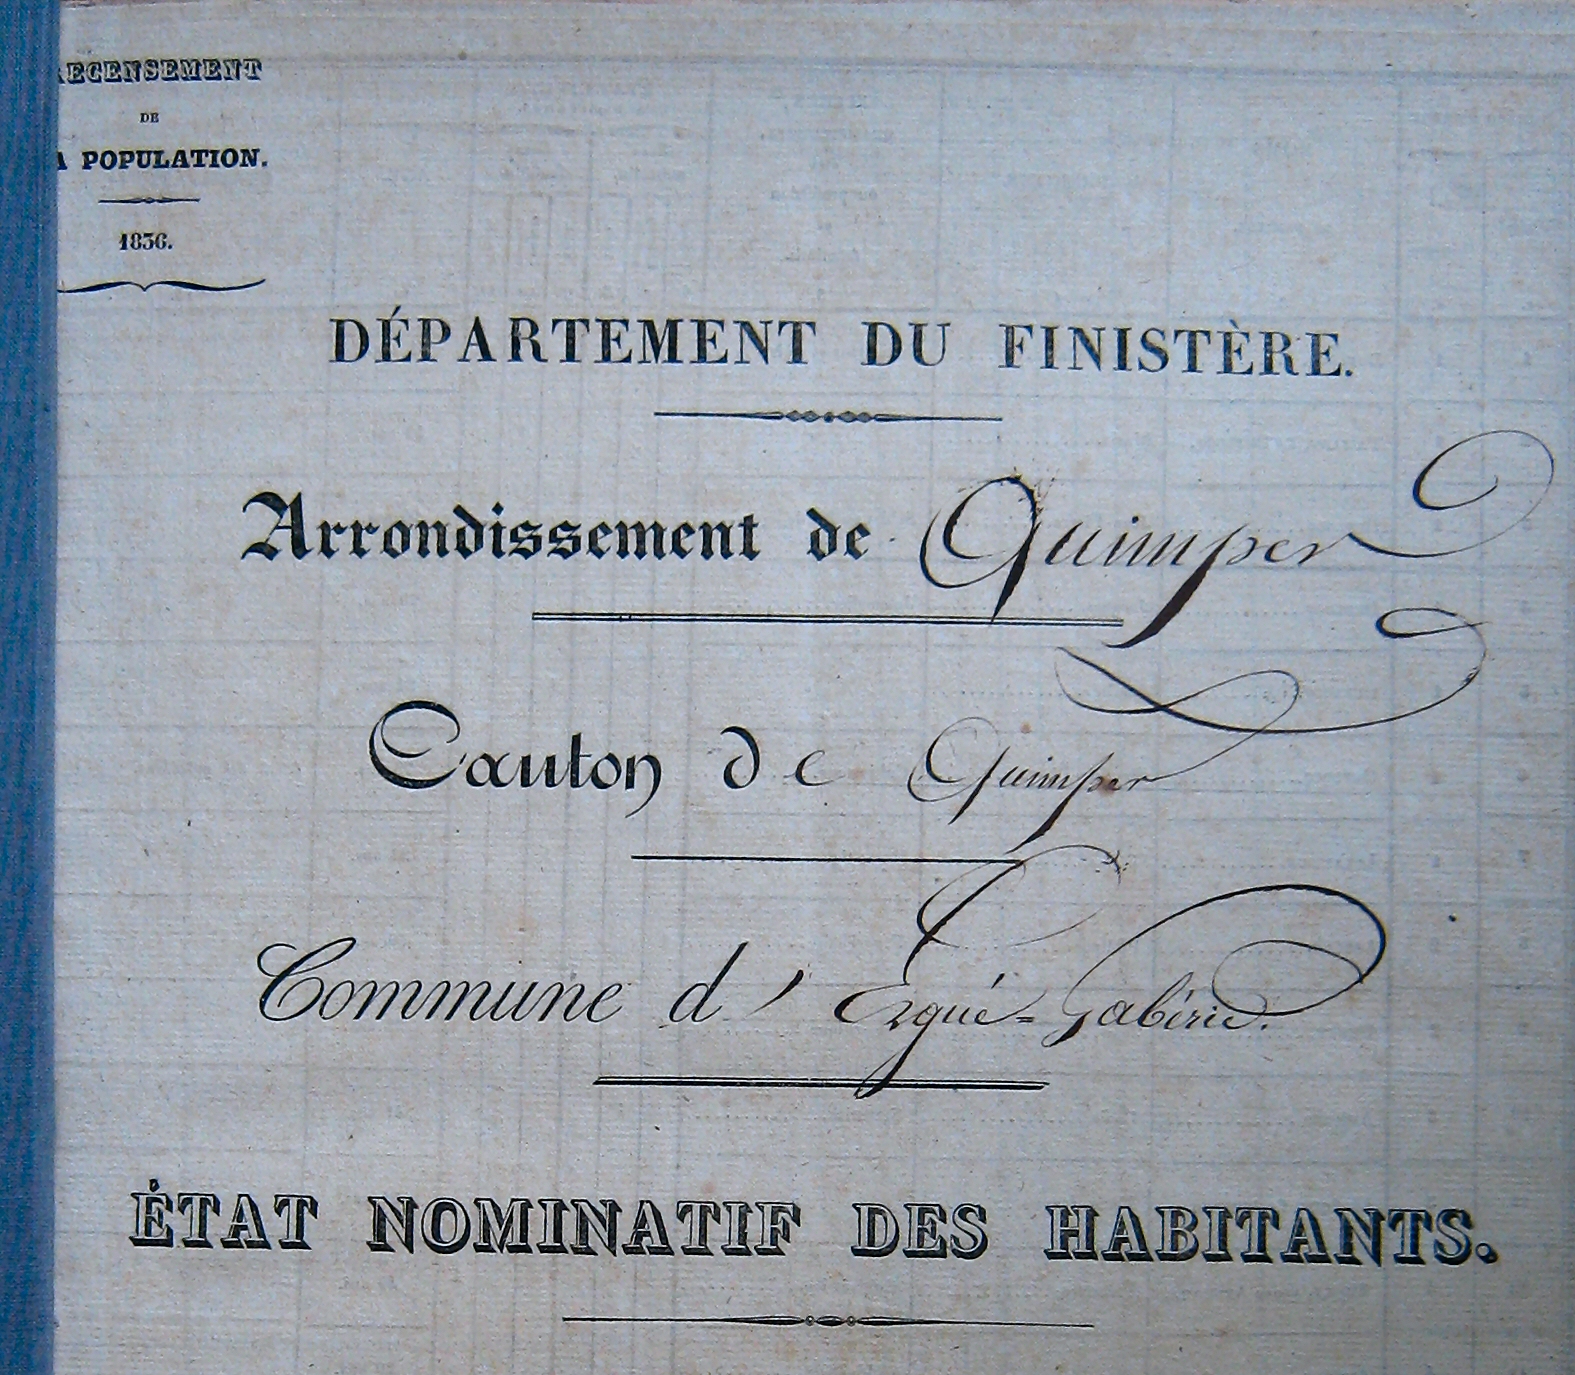 RECENSEMENT
DE
A POPULATION.
1836.
DÉPARTEMENT DU FINISTÈRE.
Arrondissement de Quimper
Canton de Quimper
Commune d' Ergué-Gabéric.
ÉTAT NOMINATIF DES HABITANTS.